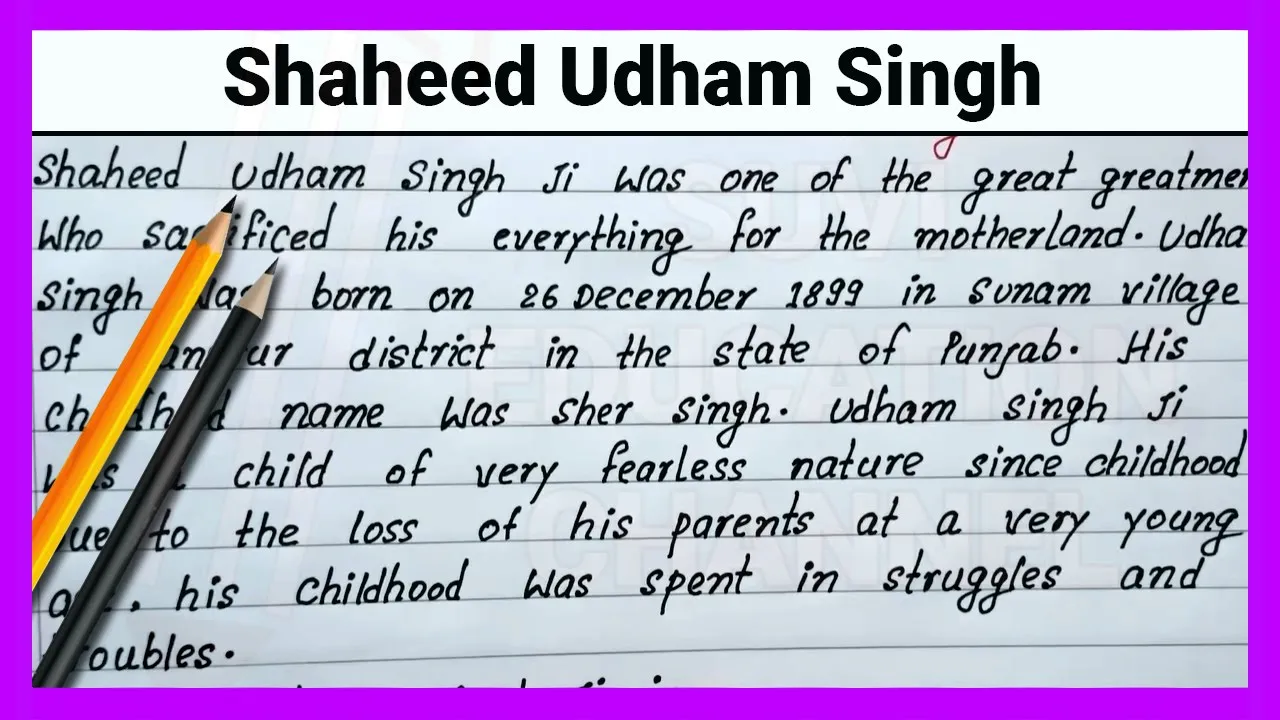 Shaheed Udham Singh
Shaheed Udham Singh Ji was one of the great greatmen
Who sacrificed his everything for the motherland. Udha
Singh was born on 26 December 1899 in Sunam village
of district in the state of Punjab. His
childhood name was Sher Singh. Udham Singh Ji
was a child of very fearless nature since childhood
due to the loss of his parents at a very young
his childhood was spent in struggles and
troubles.
SUVI
EDUCATION
CHANNEL